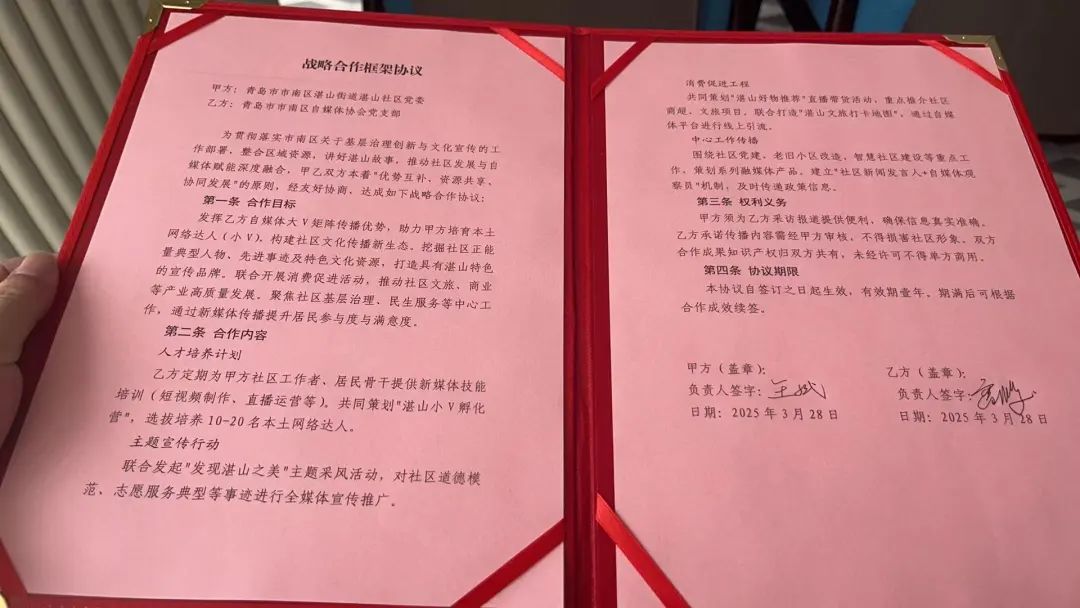 战略合作框架协议
甲方：青岛市市南区湛山街道湛山社区党委
乙方：青岛市市南区自媒体协会党支部
为贯彻落实市南区关于基层治理创新与文化宣传的工
作部署，整合区域资源，讲好湛山故事，推动社区发展与自
媒体赋能深度融合，甲乙双方本着"优势互补、资源共享、
协同发展"的原则，经友好协商，达成如下战略合作协议：
第一条 合作目标
发挥乙方自媒体大V矩阵传播优势，助力甲方培育本土
网络达人（小V），构建社区文化传播新生态。挖掘社区正能
量典型人物、先进事迹及特色文化资源，打造具有湛山特色
的宣传品牌。联合开展消费促进活动，推动社区文旅、商业
等产业高质量发展。聚焦社区基层治理、民生服务等中心工
作，通过新媒体传播提升居民参与度与满意度。
第二条 合作内容
人才培养计划
乙方定期为甲方社区工作者、居民骨干提供新媒体技能
培训（短视频制作、直播运营等）。共同策划"湛山小V孵化
营"，选拔培养10-20名本土网络达人。
主题宣传行动
联合发起"发现湛山之美"主题采风活动，对社区道德模
范、志愿服务典型等事迹进行全媒体宣传推广。
消费促进工程
共同策划"湛山好物推荐"直播带货活动，重点推介社区
商超、文旅项目。联合打造"湛山文旅打卡地图"，通过自媒
体平台进行线上引流。
中心工作传播
围绕社区党建、老旧小区改造，智慧社区建设等重点工
作，策划系列融媒体产品。建立"社区新闻发言人+自媒体观
察员"机制，及时传递政策信息。
第三条 权利义务
甲方须为乙方采访报道提供便利，确保信息真实准确。
乙方承诺传播内容需经甲方审核，不得损害社区形象。双方
合作成果知识产权归双方共有，未经许可不得单方商用。
第四条 协议期限
本协议自签订之日起生效，有效期壹年，期满后可根据
合作成效续签。
甲方（盖章）：
负责人签字：王斌
日期：2025年3月28日
乙方（盖章）：
负责人签字：
日期：2025年3月28日